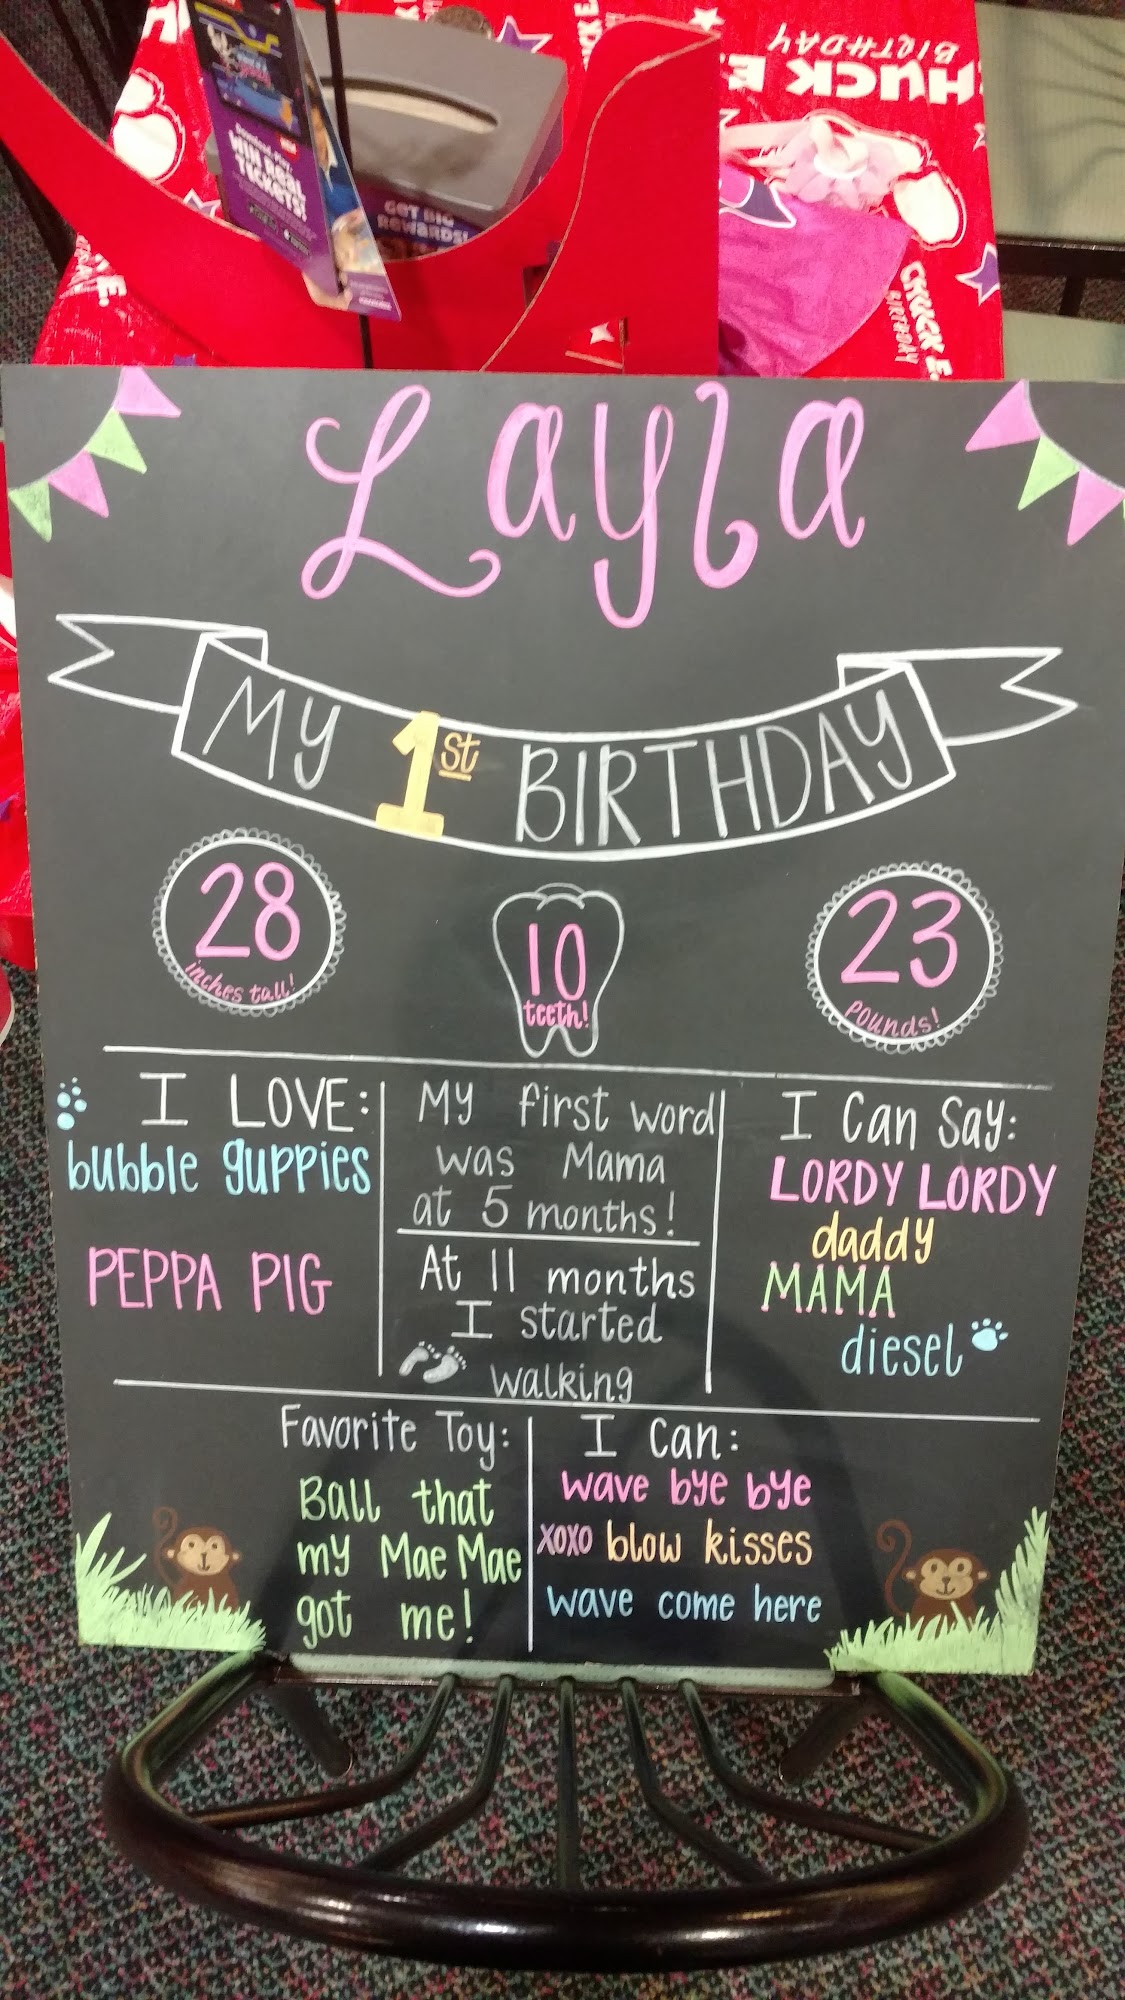 WIN REAL
TICKETS!
GET BIG
REWARDS!
HUCK E.
BIRTHDAY
CHUCK E.
BIRTHDAY
Layla
MY 1st BIRTHDAY
28
inches tall!
10
teeth!
23
pounds!
I LOVE:
bubble guppies
PEPPA PIG
My first word
was Mama
at 5 months!
At 11 months
I started
walking
I Can Say:
LORDY LORDY
daddy
MAMA
diesel
Favorite Toy:
Ball that
my Mae Mae
got me!
I Can:
wave bye bye
xoxo blow kisses
wave come here